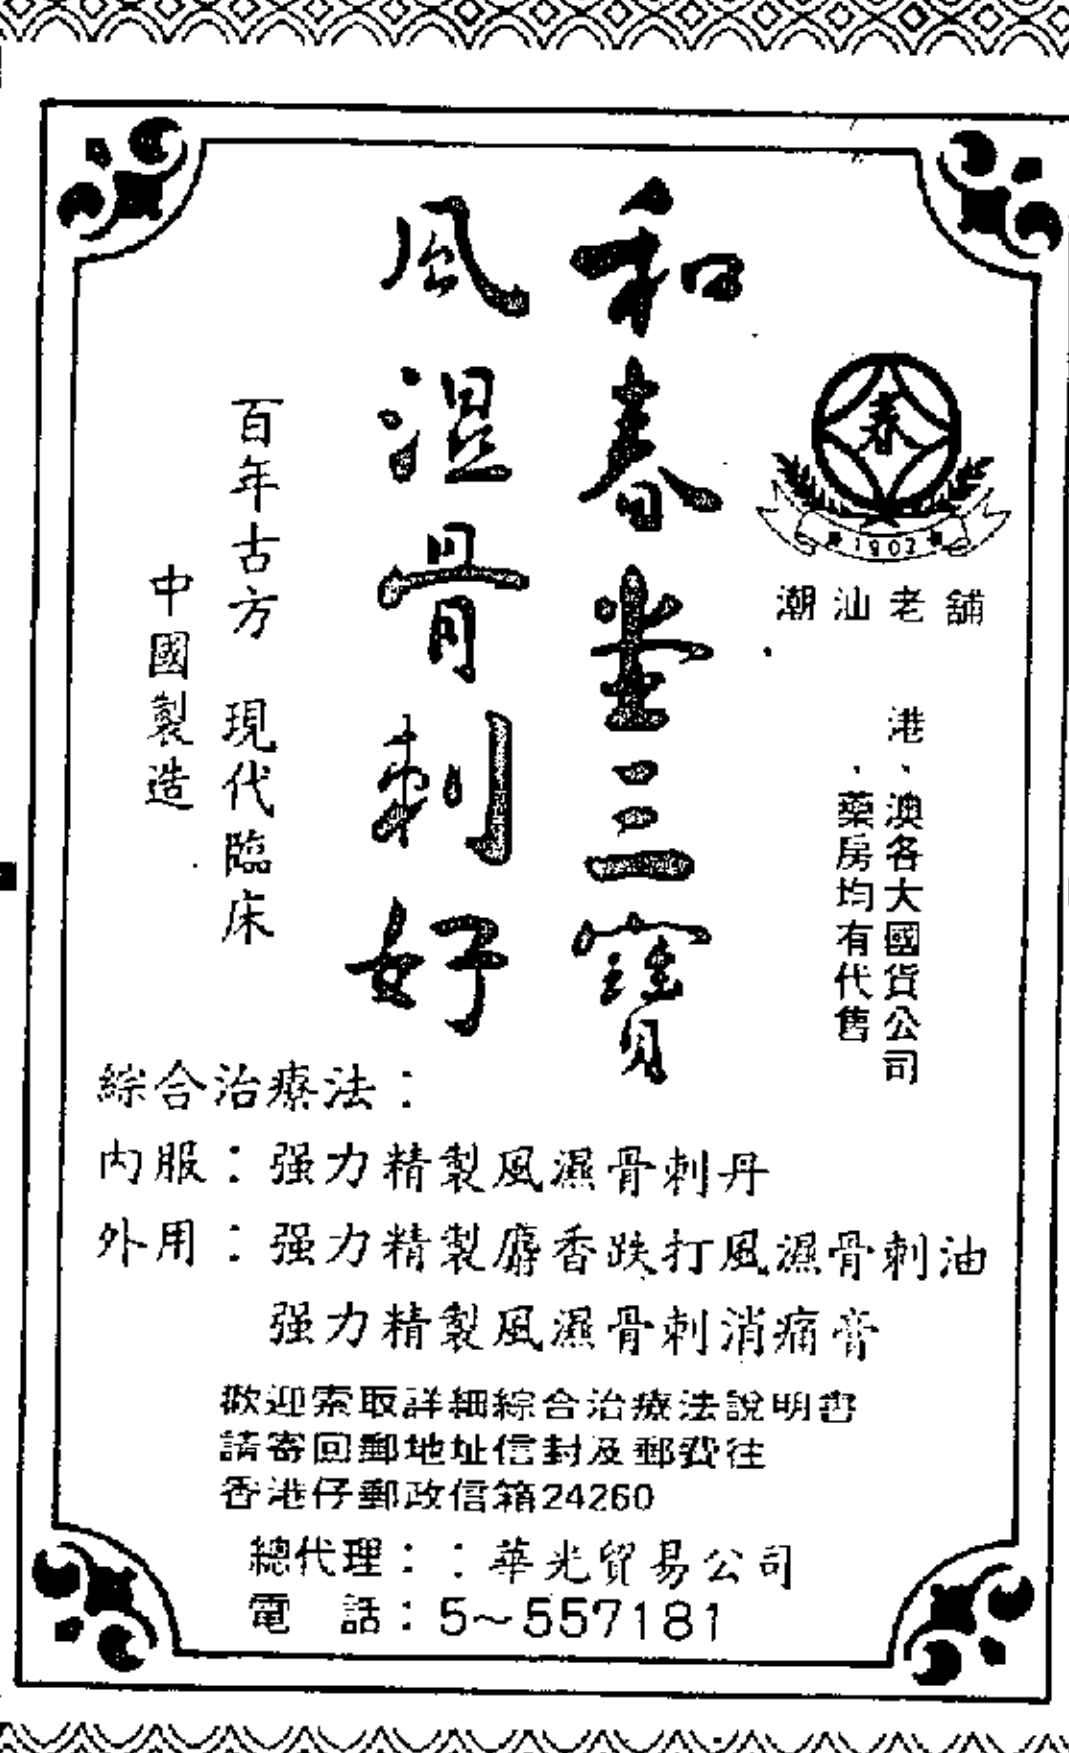 春
1902
潮汕老舖
港、澳各大國貨公司
、藥房均有代售
和春堂三寶
風濕骨刺好
百年古方 現代臨床
中國製造
綜合治療法：
內服：强力精製風濕骨刺丹
外用：强力精製麝香跌打風濕骨刺油
强力精製風濕骨刺消痛膏
歡迎索取詳細綜合治療法說明書
請寄回郵地址信封及郵費往
香港仔郵政信箱24260
總代理：：華光貿易公司
電 話：5～557181